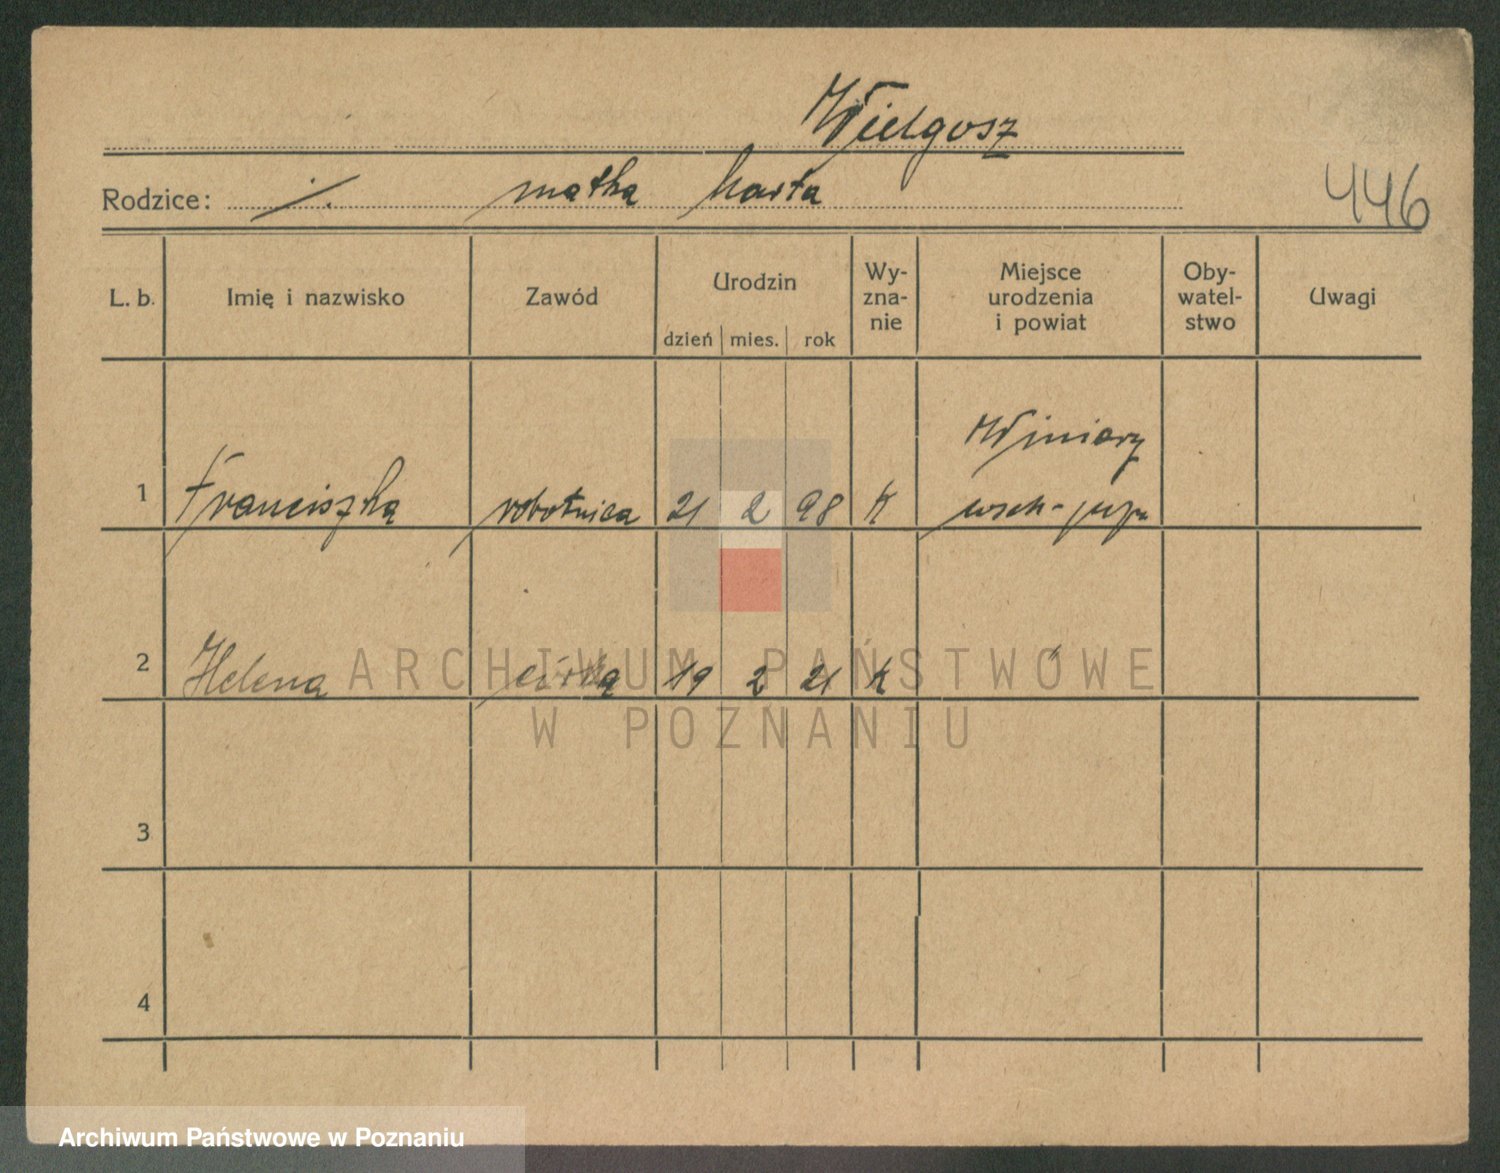 Wielgosz
Rodzice: ./. matka Marta
446
L. b. Imię i nazwisko Zawód Urodzin dzień mies. rok Wy-zna-nie Miejsce urodzenia i powiat Oby-watel-stwo Uwagi
Winiary
1 Franciszka robotnica 21 2 98 K
2 Helena córka 19 2 21 K
ARCHIWUM PAŃSTWOWE
W POZNANIU
3
4
Archiwum Państwowe w Poznaniu